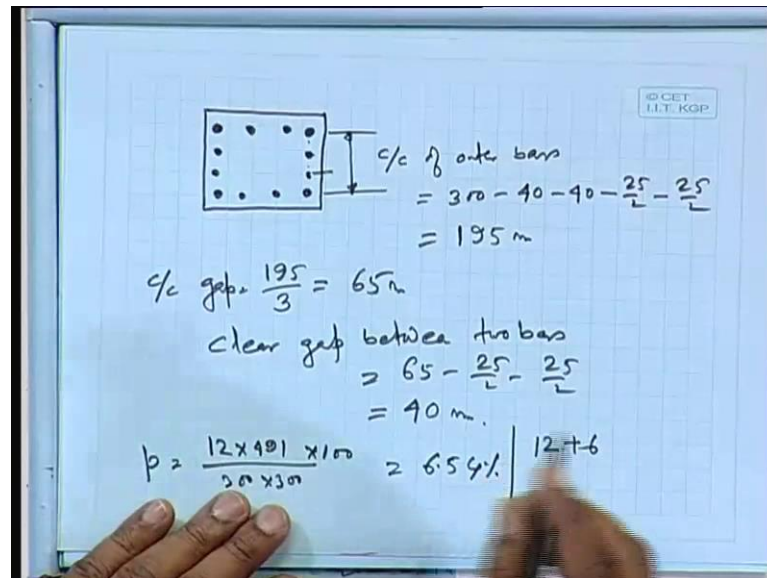 © CET
I.I.T. KGP
c/c of outer bars
= 300 - 40 - 40 - 25/2 - 25/2
= 195 m
c/c gap = 195/3 = 65 m
Clear gap between two bars
= 65 - 25/2 - 25/2
= 40 m.
p = 12 x 491 x 100 / 300 x 300 = 6.54% | 12 + 6